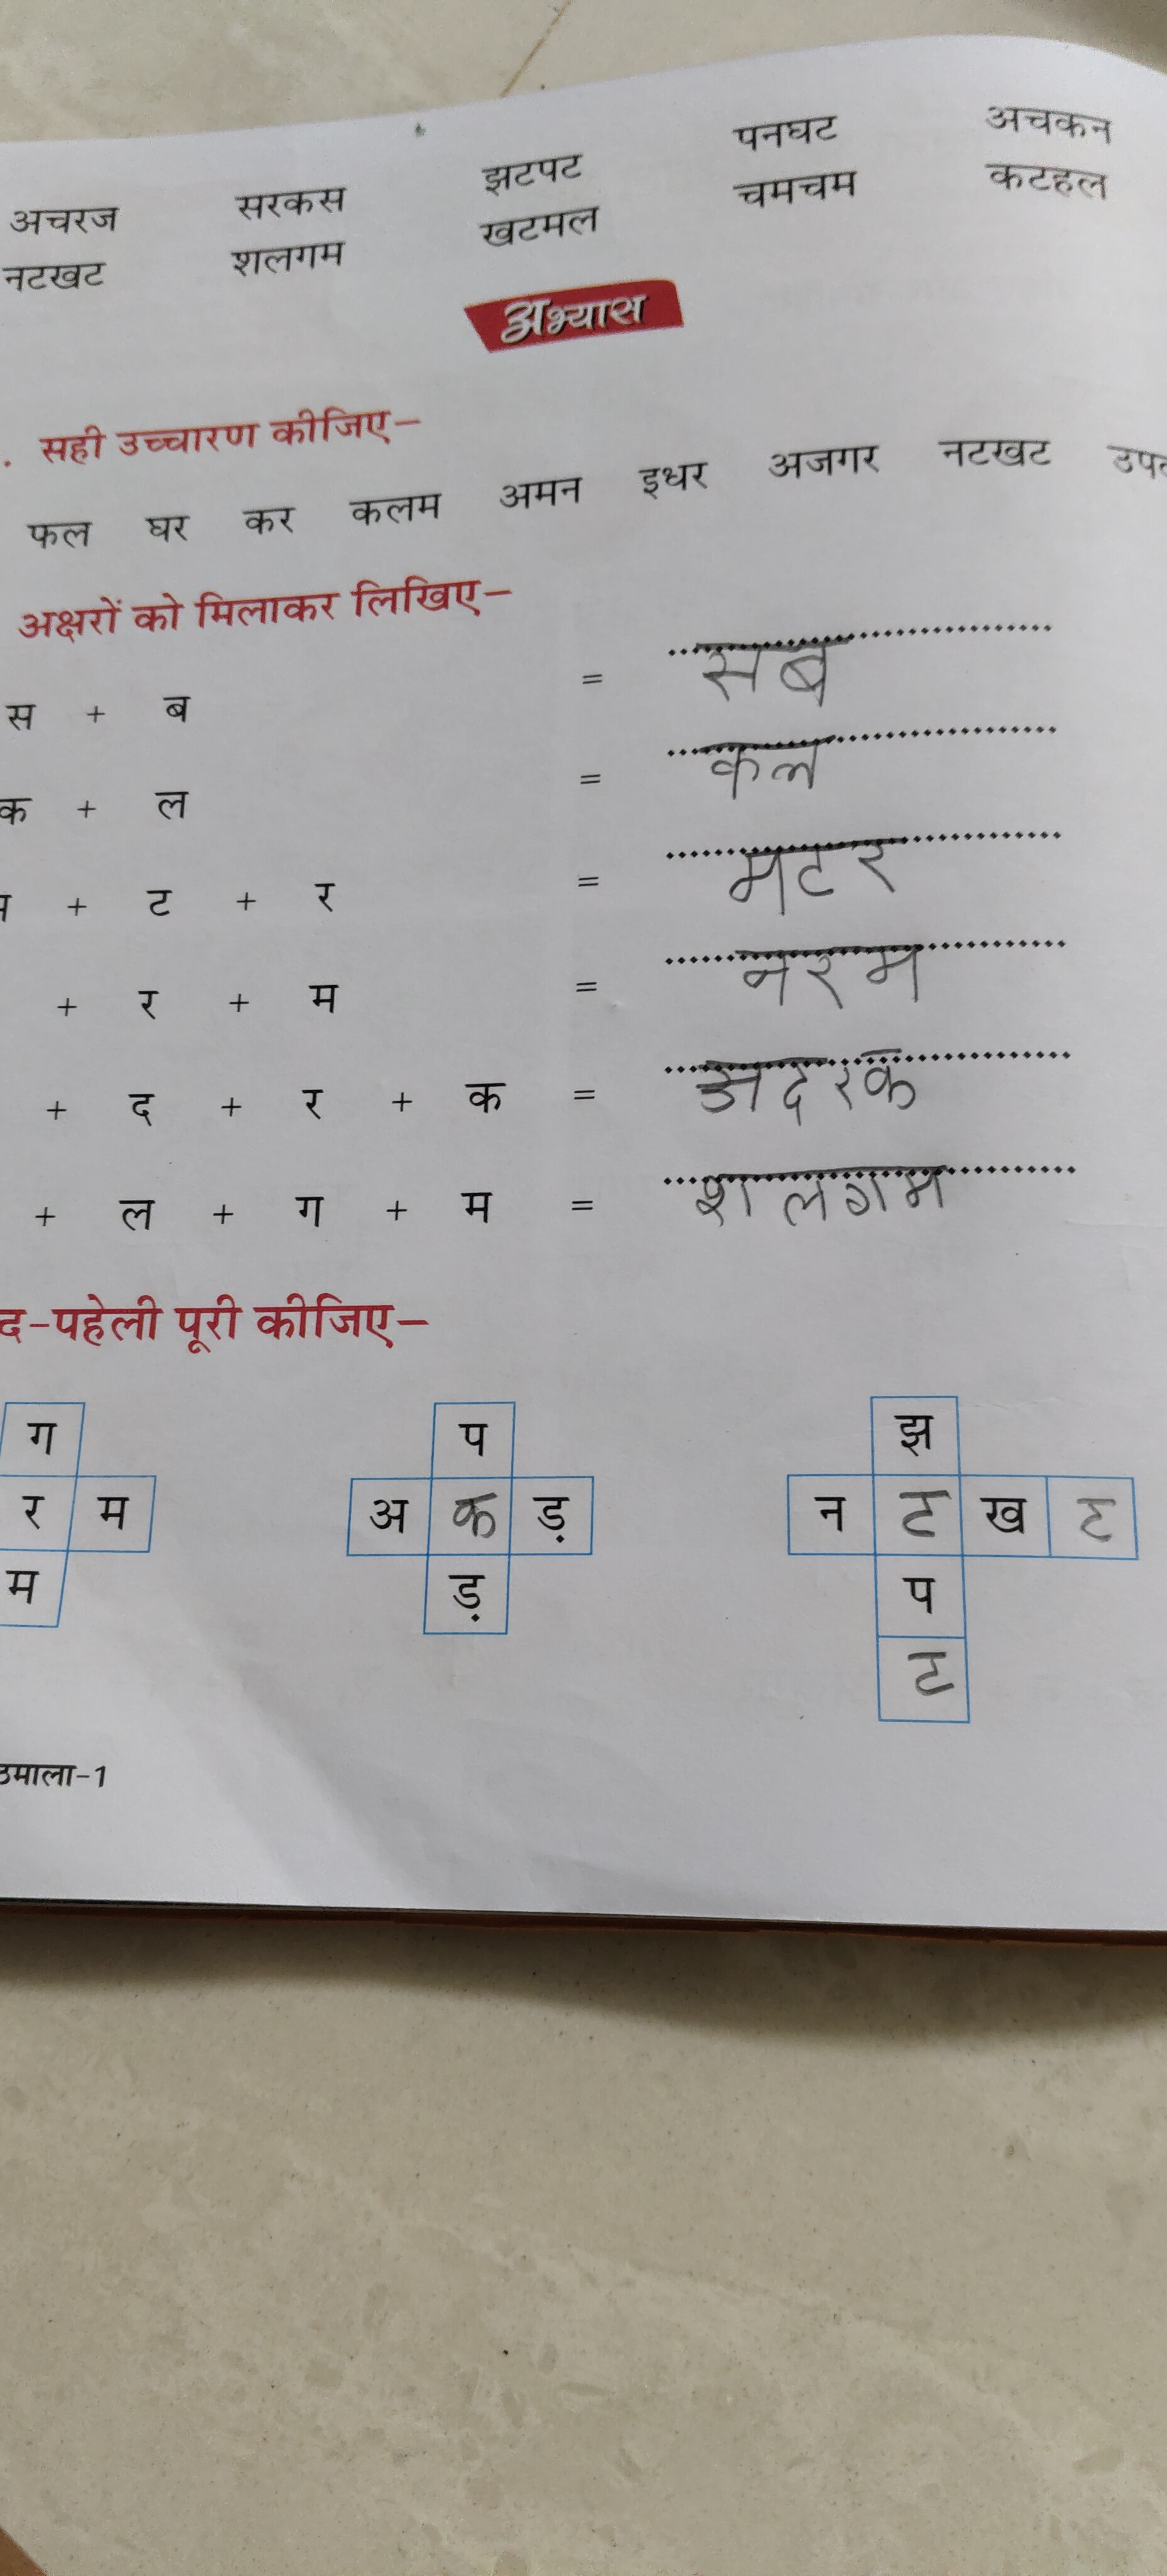 पनघट अचकन
अचरज सरकस झटपट चमचम कटहल
नटखट शलगम खटमल
अभ्यास
. सही उच्चारण कीजिए–
फल घर कर कलम अमन इधर अजगर नटखट
अक्षरों को मिलाकर लिखिए–
स + ब = सब
क + ल = कल
+ ट + र = मटर
+ र + म = नरम
+ द + र + क = अदरक
+ ल + ग + म = शलगम
द-पहेली पूरी कीजिए–
ग प झ
र म अ क ड़ न ट ख ट
म ड़ प
ट
ठमाला-1